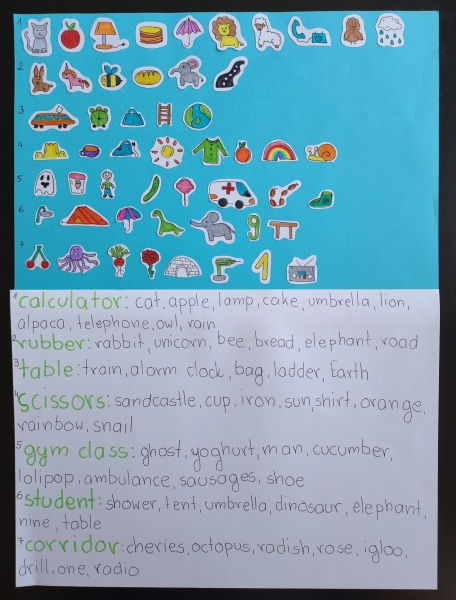 1
2
3
4
5
6
7
9
1
1 calculator: cat, apple, lamp, cake, umbrella, lion,
alpaca, telephone, owl, rain
2 rubber: rabbit, unicorn, bee, bread, elephant, road
3 table: train, alarm clock, bag, ladder, Earth
4 scissors: sandcastle, cup, iron, sun, shirt, orange,
rainbow, snail
5 gym class: ghost, yoghurt, man, cucumber,
lolipop, ambulance, sausages, shoe
6 student: shower, tent, umbrella, dinosaur, elephant,
nine, table
7 corridor: cheries, octopus, radish, rose, igloo,
drill, one, radio